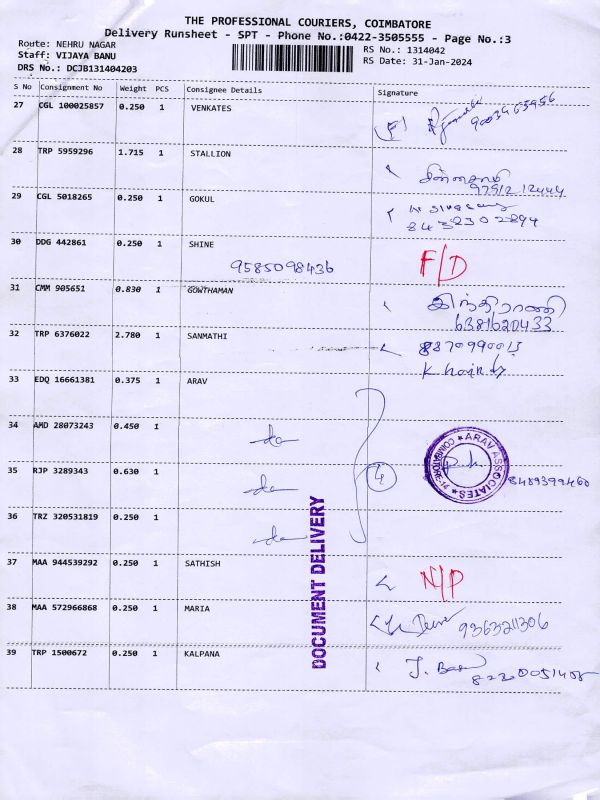 THE PROFESSIONAL COURIERS, COIMBATORE
Delivery Runsheet - SPT - Phone No.:0422-3505555 - Page No.:3
Route: NEHRU NAGAR
Staff: VIJAYA BANU
DRS No.: DCJB131404203
RS No.: 1314042
RS Date: 31-Jan-2024
S No Consignment No Weight PCS Consignee Details Signature
27 CGL 100025857 0.250 1 VENKATES
28 TRP 5959296 1.715 1 STALLION
9751212444
29 CGL 5018265 0.250 1 GOKUL
8432302894
30 DDG 442861 0.250 1 SHINE F/D
9585098436
31 CMM 905651 0.830 1 GOWTHAMAN
இந்திராணி
6381620433
32 TRP 6376022 2.780 1 SANMATHI
33 EDQ 16661381 0.375 1 ARAV
34 AMD 28073243 0.450 1 do
35 RJP 3289343 0.630 1 do 4
ARAV ASSOCIATES
8489399460
36 TRZ 320531819 0.250 1 do
DOCUMENT DELIVERY
37 MAA 944539292 0.250 1 SATHISH N/P
38 MAA 572966868 0.250 1 MARIA 9363211306
39 TRP 1500672 0.250 1 KALPANA